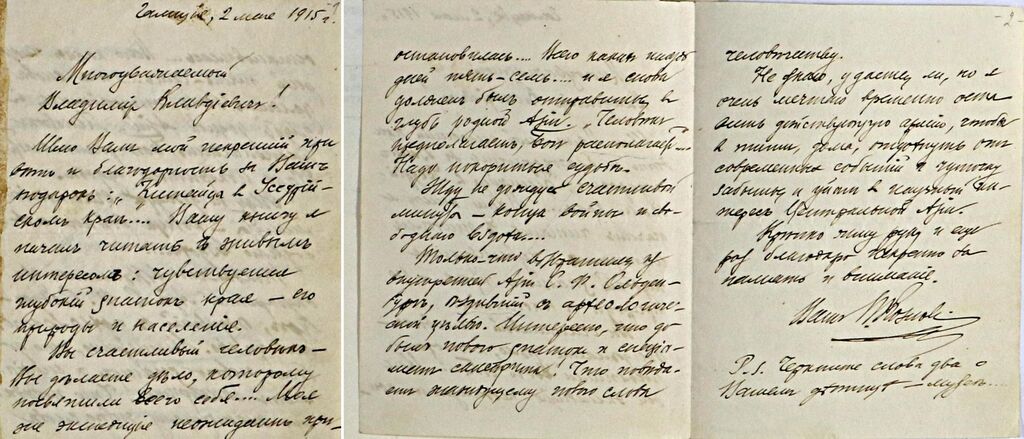 Галиция, 2 мая 1915 г.
Многоуважаемый
Владимір Клавдіевичъ!
Шлю Вамъ мой искренній при
вѣтъ и благодарность за Вашъ
подарокъ: „Китайцы в Уссурій-
скомъ краѣ.... Вашу книгу я
началъ читать съ живымъ
интересомъ: чувствуется
глубокій знатокъ края – его
природы и населенія.
Вы счастливый человѣкъ –
Вы дѣлаете дѣло, которому
посвятили всего себя.... Моя
же экспедиція неожиданно прі-
остановилась.... Всего какихъ нибудь
дней пять-семь.... и я снова
долженъ былъ отправиться въ
глубь родной Азіи. „Человѣкъ
предполагаетъ, Богъ располагаетъ"..
Надо покориться судьбѣ.
Жду не дождусь счастливой
минуты – конца войны и сво-
бодного вздоха....
Только-что возвратился из
внутренней Азіи С. Ф. Ольден-
бургъ, ѣздившій съ археологиче-
ской цѣлью. Интересно, что до
былъ нового знатокъ и спеціа-
листъ санскрита! Что повѣда-
етъ нового слова
-2-
человѣчеству.
Не знаю, удастся ли, но я
очень мечтаю временно оста
вить дѣйствующую армію, чтобы
въ тиши, дома, отдохнуть отъ
современныхъ событій и чуточку
забыться и уйти в научный ин-
тересъ Центральной Азіи.
Крѣпко жму руку и еще
разъ благодарю сердечно за
память и вниманіе.
Вашъ П. Козловъ.
P.S. Черкните слова два о
Вашемъ дѣтищѣ – музеѣ...